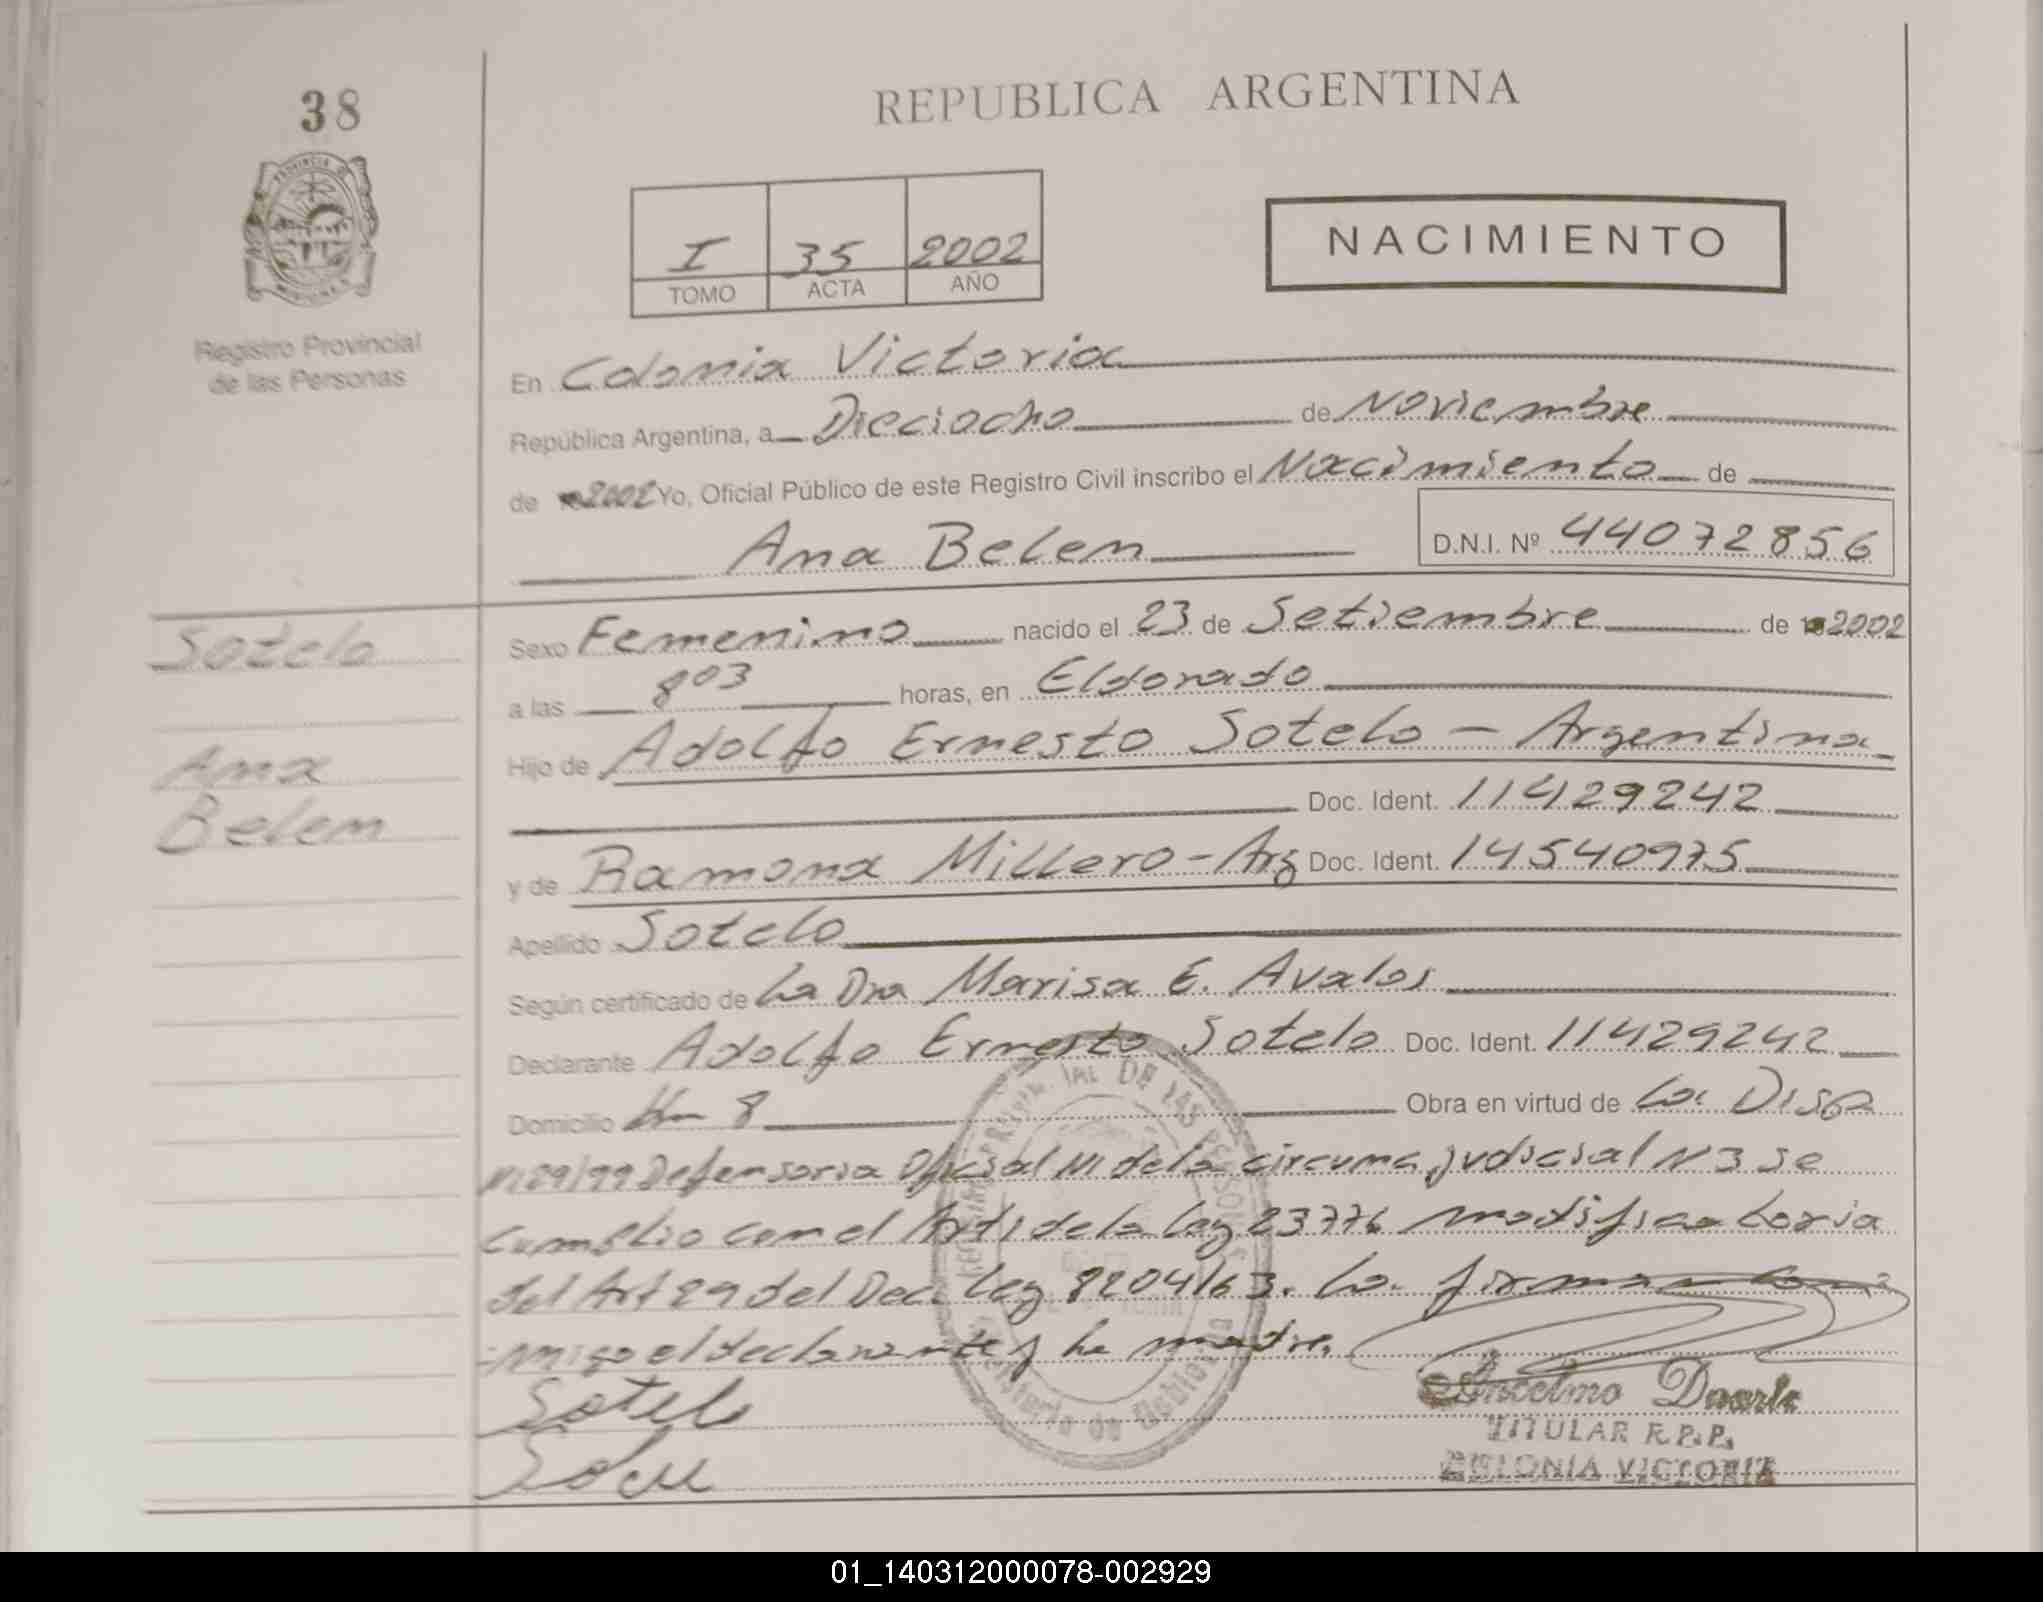 38
REPUBLICA ARGENTINA
I 35 2002
TOMO ACTA AÑO
NACIMIENTO
Registro Provincial
de las Personas
En Colonia Victoria
República Argentina, a Dieciocho de Noviembre
de 2002 Yo, Oficial Público de este Registro Civil inscribo el Nacimiento de
Ana Belen D.N.I. Nº 44072856
Sotelo
Ana
Belen
Sexo Femenino nacido el 23 de Setiembre de 2002
a las 8 03 horas, en Eldorado
Hijo de Adolfo Ernesto Sotelo - Argentina
Doc. Ident. 11429242
y de Ramona Millero - Arg Doc. Ident. 14540975
Apellido Sotelo
Según certificado de La Dra Marisa E. Avalos
Declarante Adolfo Ernesto Sotelo Doc. Ident. 11429242
Domicilio Km 8 Obra en virtud de La Disp
N 29/99 Defensoria Oficial N1 de la circunc. judicial N 3 se
cumplio con el Art 1 de la Ley 23776 modificatoria
del Art 29 del Dec. Ley 8204/63. La firman con
-migo el declarante y la madre.
Sotelo
Anselmo Duarte
TITULAR R.P.P.
COLONIA VICTORIA
01_140312000078-002929